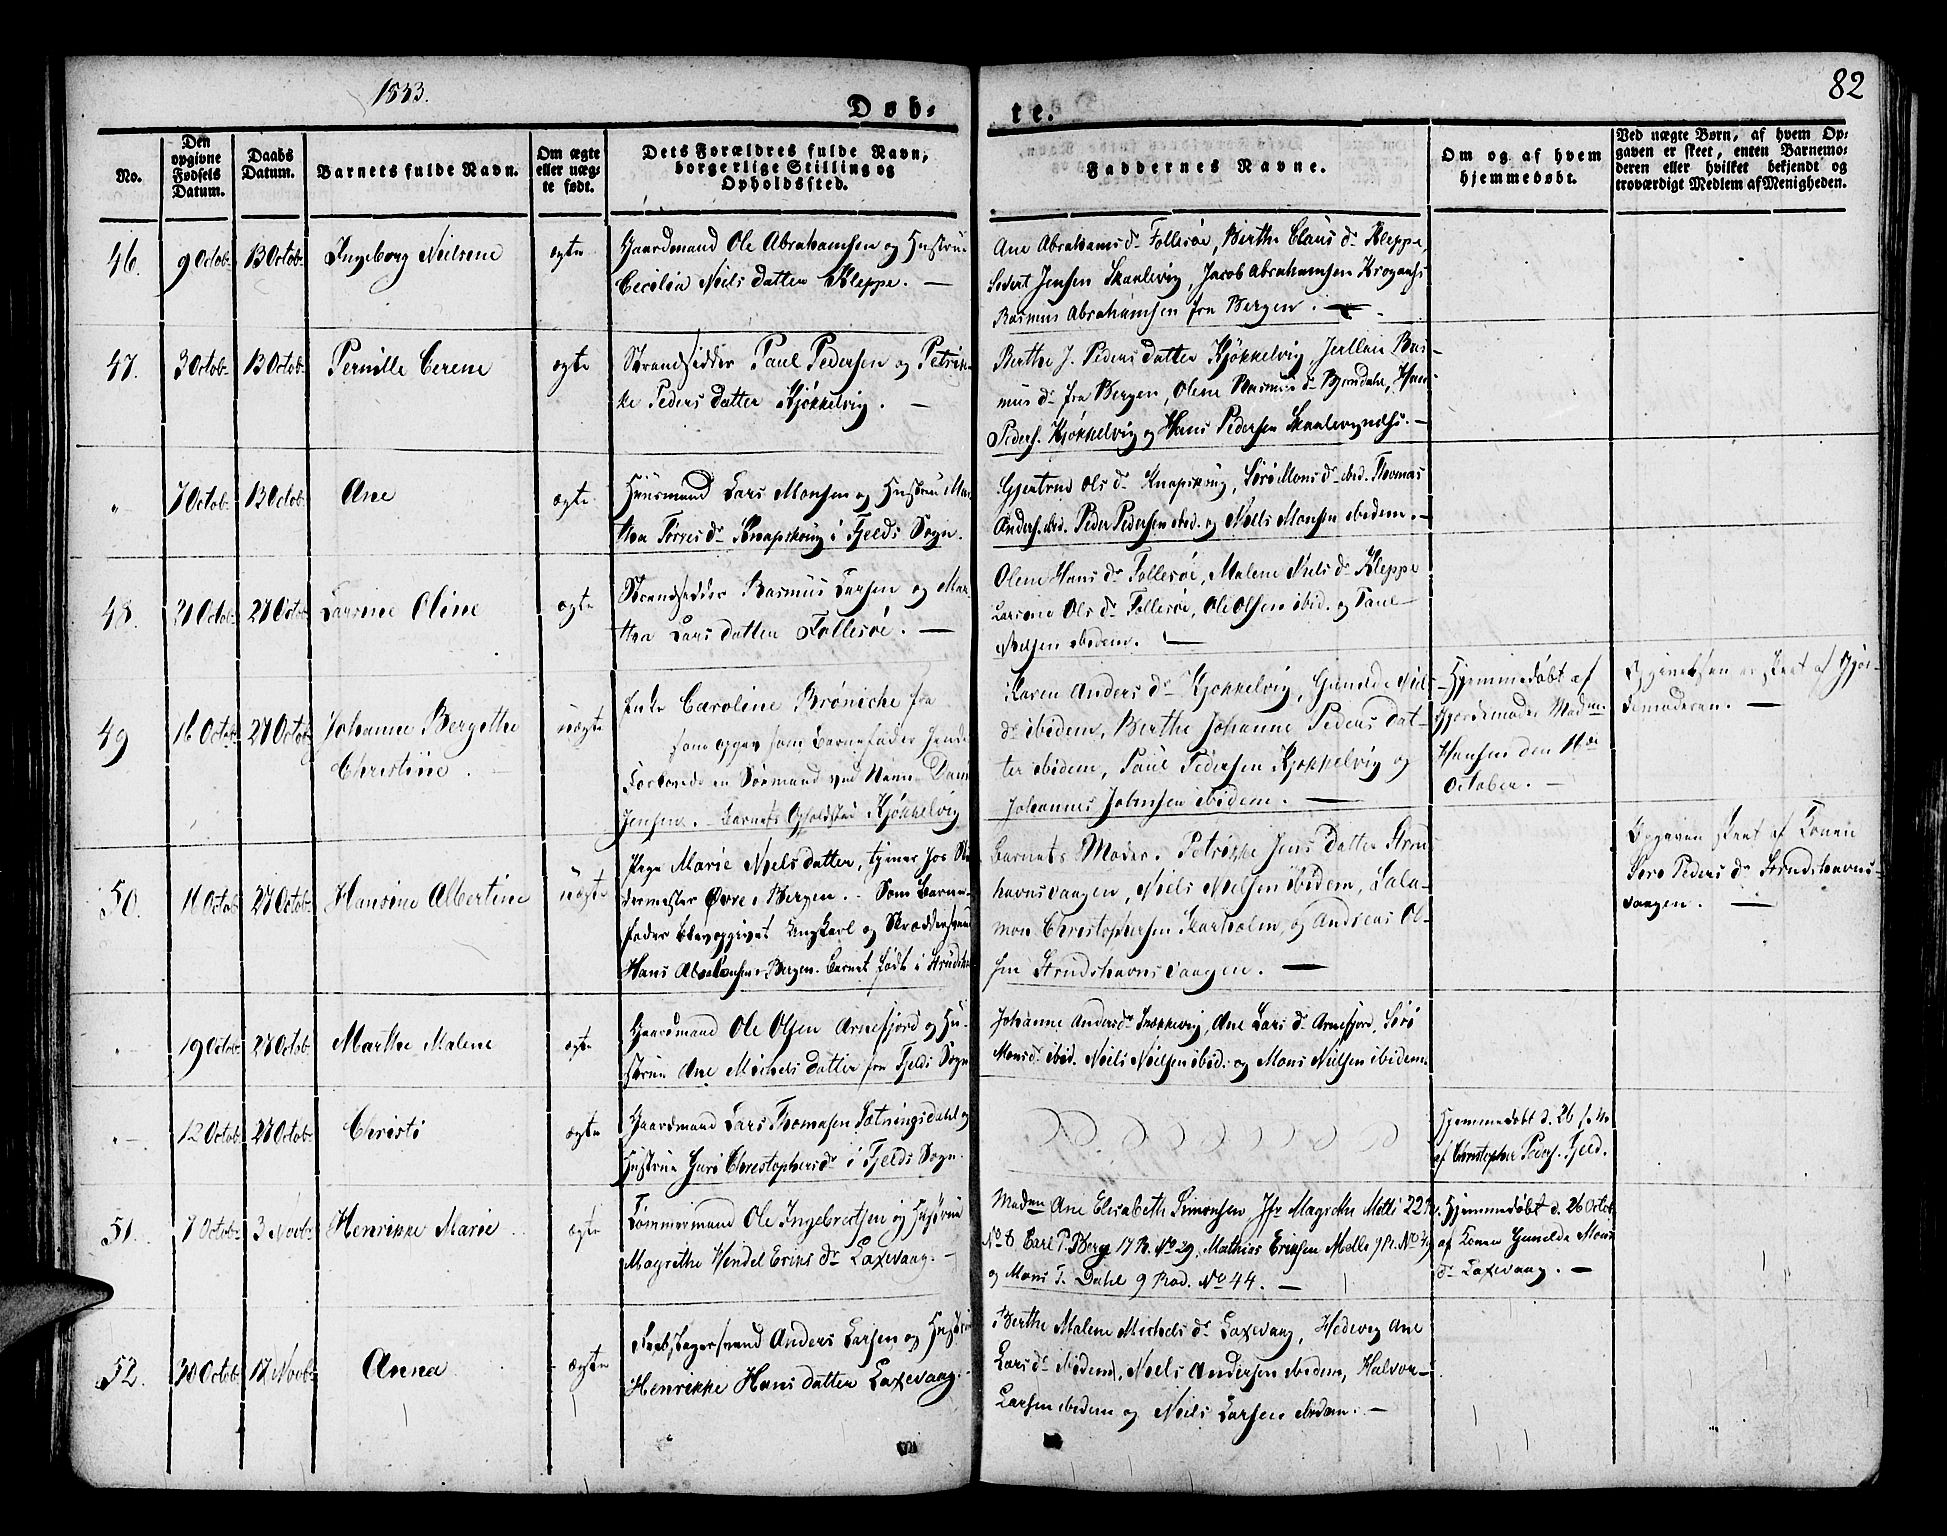 1833.
82
Døb-
te.
No.
Den opgivne Fødsels Datum.
Daabs Datum.
Barnets fulde Navn.
Om ægte eller uægte født.
Dets Forældres fulde Navn, borgerlige Stilling og Opholdssted.
Faddernes Navne.
Om og af hvem hjemmedøbt.
Ved uægte Børn, af hvem Opgaven er skeet, enten Barnemoderen eller hvilket bekjendt og troværdigt Medlem af Menigheden.
46. 9 Octob. 13 Octob. Ingeborg Nielsene ægte
Gaardmand Ole Abrahamsen og Hustrue
Cecilia Niels datter Kleppe. —
Ane Abrahams dr Follesøe, Berthe Claus dr Kleppe,
Sivert Jensen Skaalevig, Jacob Abrahamsen
Rasmus Abrahamsen fra Bergen. —
47. 3 Octob. 13 Octob. Pernille Cerene ægte
Strandsidder Paul Pedersen og Petrik-
ke Peders datter Kjøkkelvig. —
Berthe J. Peders datter Kjøkkelvig, Ras-
mus dr fra Bergen, Olene Rasmus dr Bjørndahl, Hans
Peders. Kjøkkelvig og Hans Pedersen
" 7 Octob. 13 Octob. Ane ægte
Huusmand Lars Monsen og Hustrue Mar-
tha Torres dr Knapskoug i Fjelds Sogn.
Gjertrud Ols dr Knapskoug, Siri Mons dr ibid. Thomas
Anders. ibid. Peder Pedersen ibid. og Niels Monsen ibidem. —
48. 21 Octob. 27 Octob. Larsine Oline ægte
Strandsidder Rasmus Larsen og Mar-
tha Lars datter Follesøe. —
Olene Hans dr Follesøe, Malene Niels dr Kleppe
Larsine Ols dr Follesøe, Ole Olsen ibid. og Paul
Nielsen ibidem. —
49 16 Octob. 27 Octob. Johanne Bergethe
Christine. uægte
Enke Caroline Brøniche fra
som opgav som Barnefader hendes
Forlovede en Sømand ved Navn
Jensen. Barnets Opholdsted Kjøkkelvig
Karen Anders dr Kjøkkelvig, Gunilde Niels
dr ibidem, Berthe Johanne Peders dat-
ter ibidem, Paul Pedersen Kjøkkelvig og
Johannes Johnsen ibidem. —
Hjemmedøbt af
Gjordemoder Madm.
Hansen den
October. —
Opgivelsen er skeet af Gjor-
demoderen. —
50. 16 Octob. 27 Octob. Hansine Albertine uægte
Pige Marie Niels datter, tjener hos
dermester Øvre i Bergen. — Som Barne-
fader blev opgivet Ungkarl og Skræddersvend
Hans i Bergen. Barnet født i
Barnets Moder. Petrikke Jens datter Strus-
havnsvaagen, Niels Nielsen ibidem, Sala-
mon Christophersen Skarholm, og Andreas Ol-
sen Strudshavnsvaagen. —
Opgaven skeet af Konen
Siri Peders dr Strudshavns-
vaagen. —
19 Octob. 27 Octob. Marthe Malene ægte
Gaardmand Ole Olsen Arnefjord og Hu-
strue Ane Michels datter fra Fjelds Sogn
Johanne Anders dr Ane Lars dr Arnefjord, Siri
Mons dr ibid. Niels Nielsen ibid. og Mons Nielsen ibidem
12 Octob. 27 Octob. Christi ægte
Gaardmand Lars Thomasen Sætningsdahl og
Hustrue Guri Christophers dr i Fjelds Sogn.
Hjemmedøbt d. 26
af Christopher Peders. Fjeld.
51. 7 Octob. 3 Novbr. Henrikke Marie ægte
Tømmermand Ole Ingebretsen og Hustrue
Magrethe Hendel Eriks dr Laxevaag. —
Madm Ane Elisabeth Simonsen Jfr Magrethe Melle 22
No 6 Carl P. Berg 17 R. No 29, Mathias Eriksen Melle
og Mons T. Dahl 9 Rod. No 44. —
Hjemmedøbt d. 26 Octob.
af Konen Gunilda Mons
dr Laxevaag. —
52. 30 Octob. 17 Novbr. Anna ægte
Anders Larsen og Hustrue
Henrikke Hans datter Laxevaag. —
Berthe Malene Michels dr Laxevaag, Hedevig Ane
Lars dr ibidem, Niels Andersen ibidem, Halvor
Larsen ibidem og Niels Larsen ibidem. —